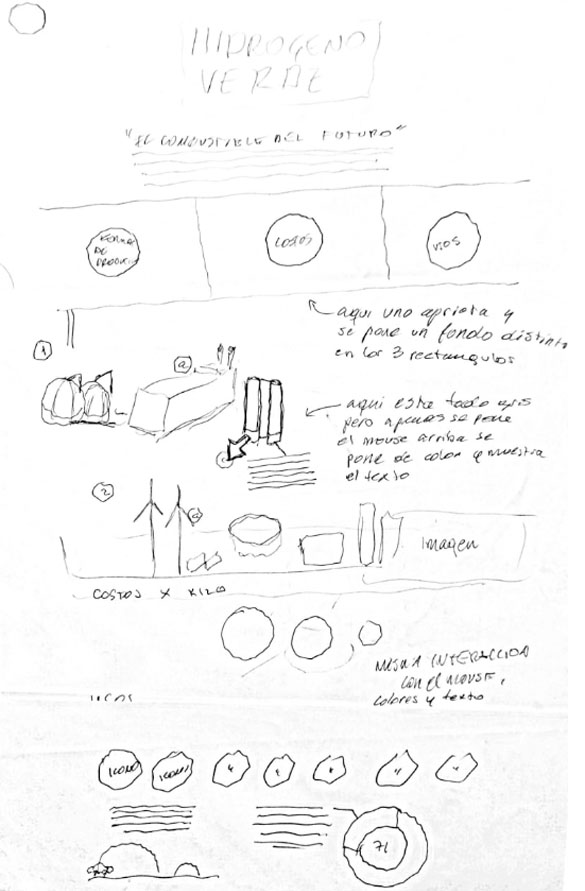 HIDROGENO
VERAZ
"EL COMBUSTIBLE DEL FUTURO"
FORMAS
DE
PRODUCIR
COSTOS
USOS
aqui uno aprieta y
se pone un fondo distinto
en los 3 rectangulos
1
a
aqui esta todo gris
pero apenas se pone
el mouse arriba se
pone de color y muestra
el texto
2
a
Imagen
COSTOS X KILO
MISMA INTERACCION
con el mouse,
colores y texto
USOS
ICONO
ICONO
"
"
"
"
"